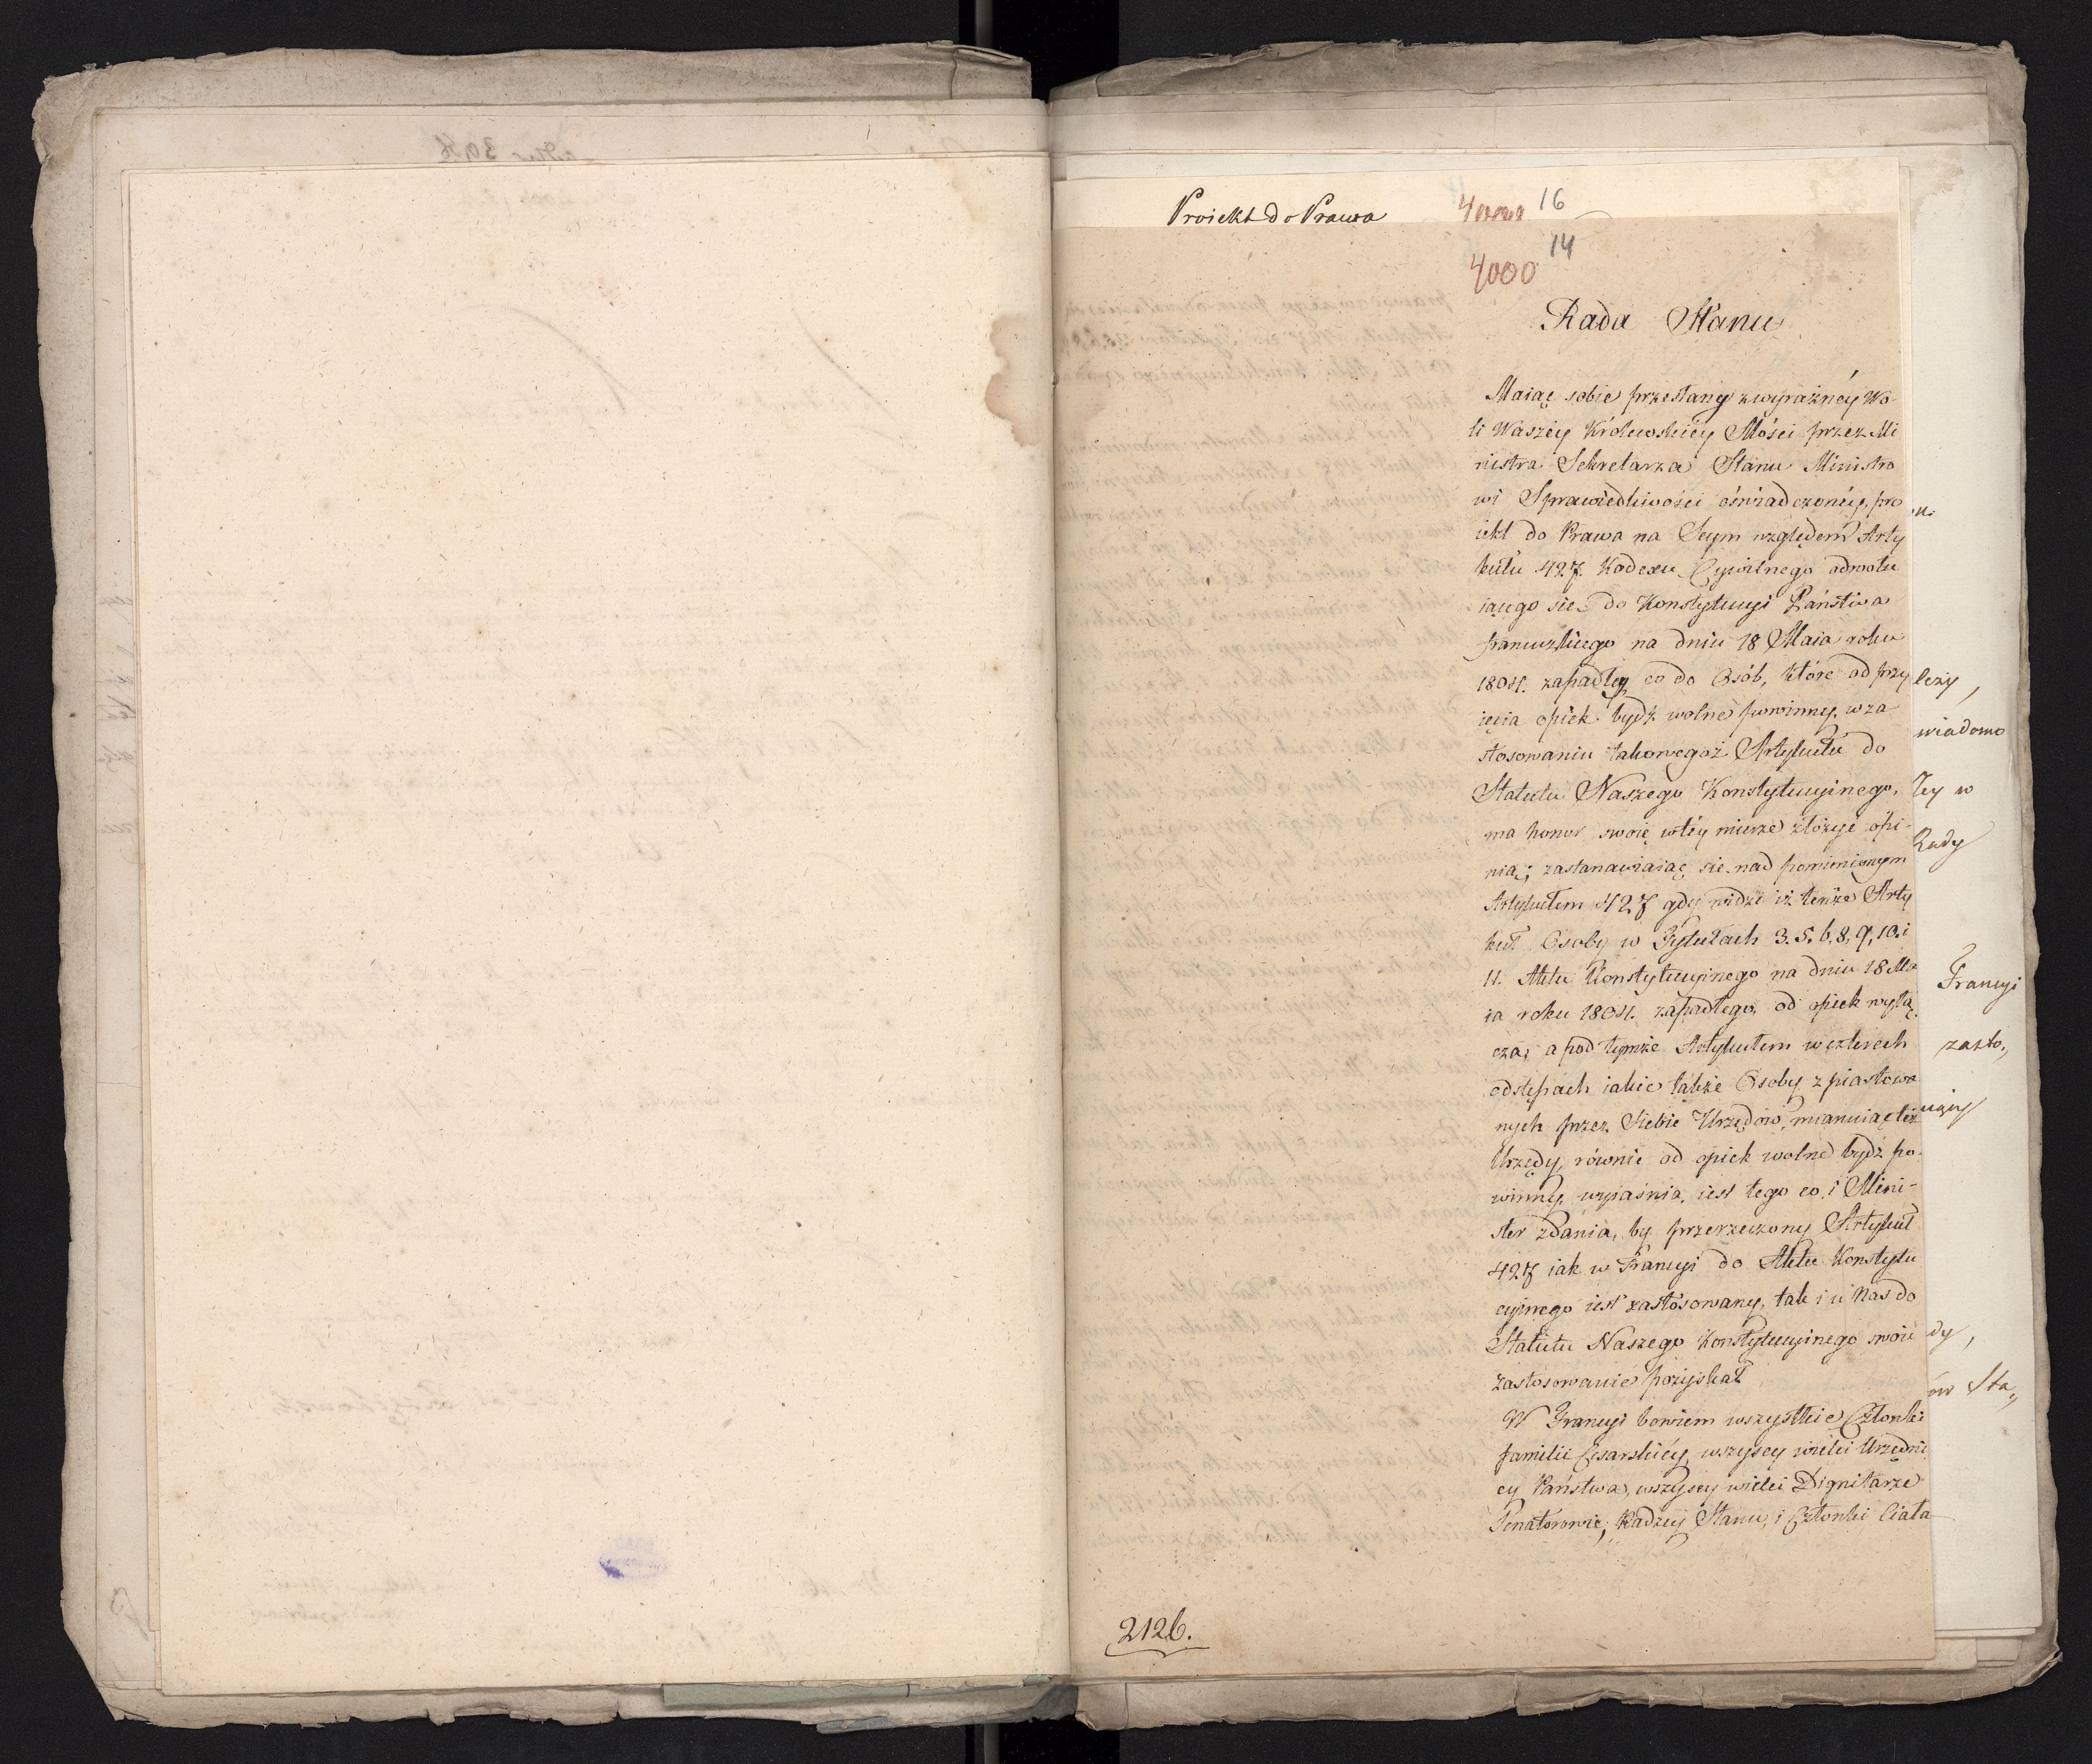 Proiekt do Prawa
16
14
4000
Rada Stanu
Maiąc sobie przesłany z wyraźnéy Wo-
li Waszéy Królewskiéy Mości przez Mi
nistra Sekretarza Stanu Ministro
wi Sprawiedliwości oświadczonéy, pro
iekt do Prawa na Seym względem Arty
kułu 427. Kodexu Cywilnego odwołu
iącego się do Konstytucyi Państwa
francuzkiego na dniu 18 Maia roku
1804. zapadłey, co do Osób, które od przy
ięcia opiek bydź wolne powinny, w za-
stosowaniu takowegoż Artykułu do
Statutu Naszego Konstytucyinego,
ma honor swoię w téy mierze złożyć opi-
nią; zastanawiaiąc się nad pomienionym
Artykułem 427 gdy widzi iż tenże Arty
kuł Osoby w Tytułach 3. 5. 6. 8. 9. 10. i
11. Aktu Konstytucyinego na dniu 18 Ma
ia roku 1804. zapadłego, od opiek wyłą
cza, a pod tymże Artykułem w czterech
odstępach iakie także Osoby z piastowa
nych przez Siebie Urzędów, mianuiąc też
Urzędy, równie od opiek wolne bydź po-
winny, wyiaśnia, iest tego co i Mini-
ster zdania, by przerzeczony Artykuł
427 iak w Francyi do Aktu Konstytu
cyinego iest zastósowany, tak i u Nas do
Statutu Naszego Konstytucyinego swoie
zastosowanie pozyskał
W Francyi bowiem wszystkie Członki
familii Cesarskiéy, wszyscy wielci Urzędni
cy Państwa, wszyscy wielci Dignitarze
Senatorowie, Radzcy Stanu, i Członki Ciała
2126.
leży,
wiadomo
Tey w
Rady
Francyi
zasto„
dy,
ów Sta„